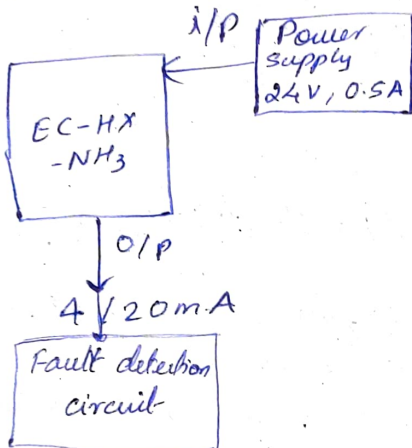 i/p
Power
Supply
24V, 0.5A
EC-HX
-NH3
O/p
4/20mA
Fault detection
circuit